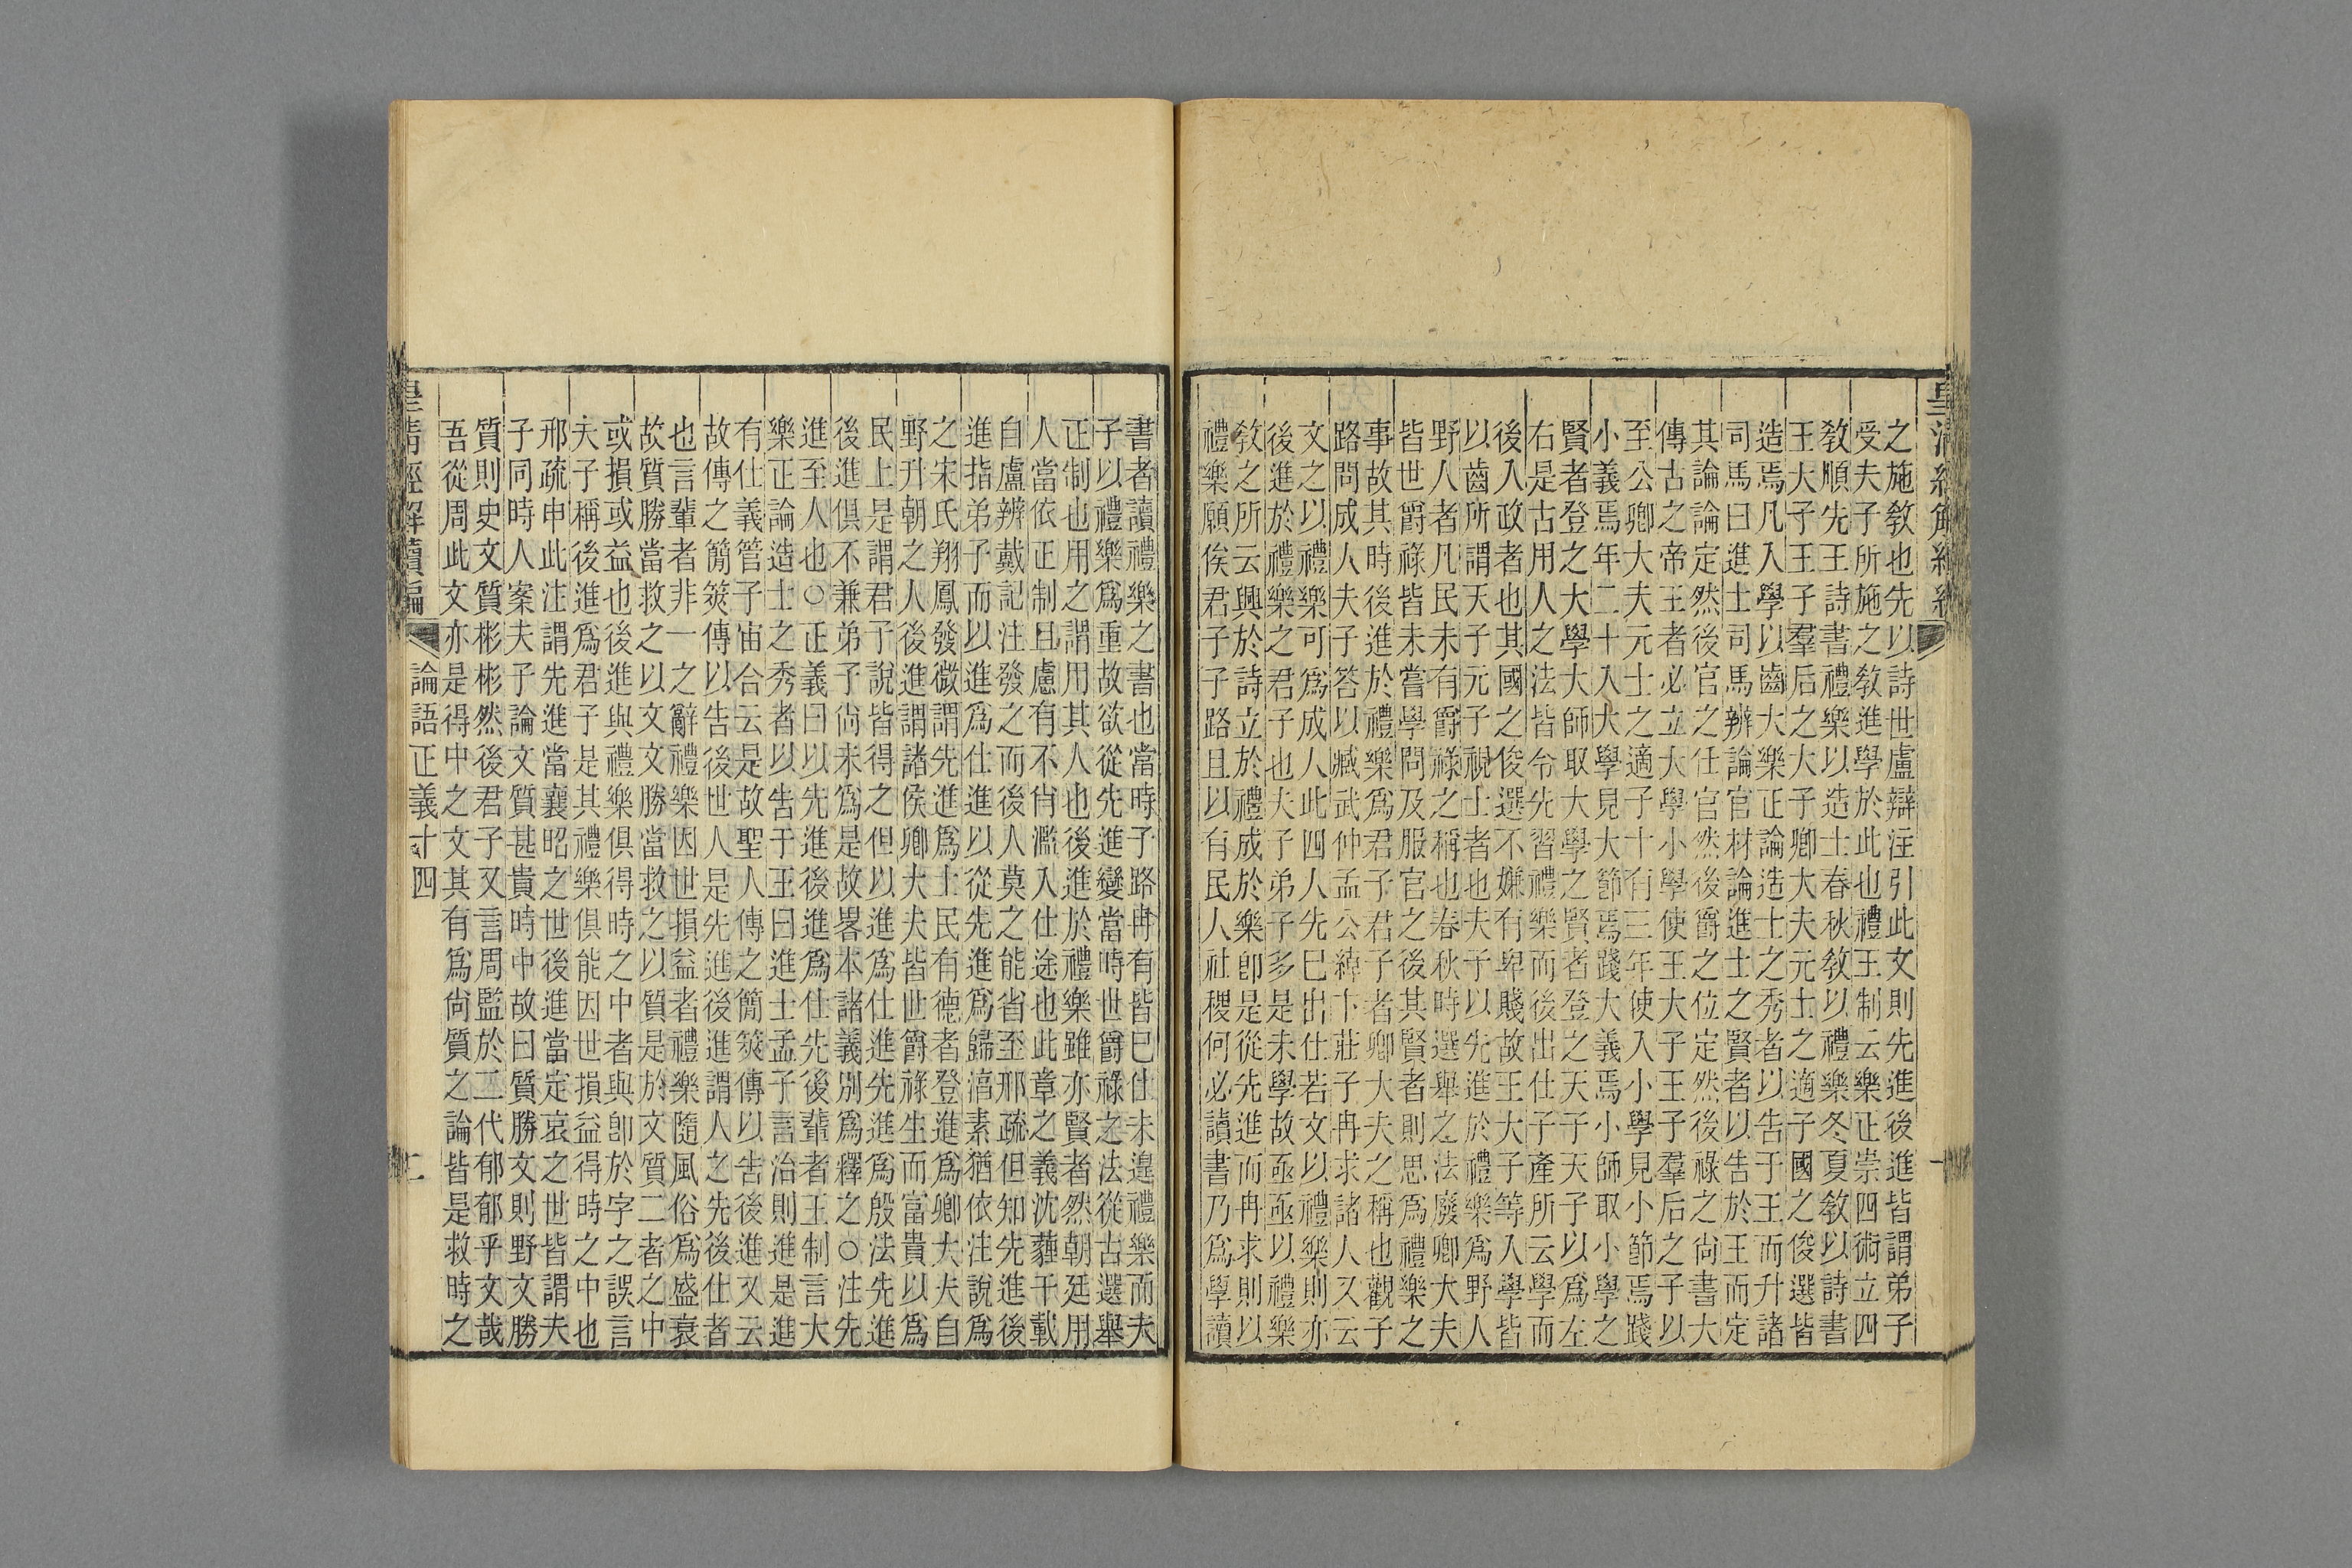 皇清經解續編
之施敎也先以詩世盧辯注引此文則先進後進皆謂弟子
受夫子所施之敎進學於此也禮王制云樂正崇四術立四
敎順先王詩書禮樂以造士春秋敎以禮樂冬夏敎以詩書
王大子王子羣后之大子卿大夫元士之適子國之俊選皆
造焉凡入學以齒大樂正論造士之秀者以告于王而升諸
司馬曰進士司馬辨論官材論進士之賢者以告於王而定
其論論定然後官之任官然後爵之位定然後祿之尚書大
傳古之帝王者必立大學小學使王大子王子羣后之子以
至公卿大夫元士之適子十有三年使入小學見小節焉踐
小義焉年二十入大學見大節焉踐大義焉小師取小學之
賢者登之大學大師取大學之賢者登之天子天子以爲左
右是古用人之法皆令先習禮樂而後出仕子產所云學而
後入政者也其國之俊選不嫌有卑賤故王大子等入學皆
以齒所謂天子元子視士者也夫子以先進於禮樂爲野人
野人者凡民未有爵祿之稱也春秋時選舉之法廢卿大夫
皆世爵祿皆未嘗學問及服官之後其賢者則思爲禮樂之
事故其時後進於禮樂爲君子君子者卿大夫之稱也觀子
路問成人夫子答以臧武仲孟公綽卞莊子冉求諸人又云
文之以禮樂可爲成人此四人先已出仕若文以禮樂則亦
後進於禮樂之君子也夫子弟子多是未學故亟亟以禮樂
敎之所云興於詩立於禮成於樂卽是從先進而冉求則以
禮樂願俟君子子路且以有民人社稷何必讀書乃爲學讀
書者讀禮樂之書也當時子路冉有皆已仕未遑禮樂而夫
子以禮樂爲重故欲從先進變當時世爵祿之法從古選舉
正制也用之謂用其人也後進於禮樂雖亦賢者然朝廷用
人當依正制且慮有不肖濫入仕途也此章之義沈薶千載
自盧辨戴記注發之而後人莫之能省至邢疏但知先進後
進指弟子而以進爲仕進以從先進爲歸湻素猶依注說爲
之宋氏翔鳳發微謂先進爲士民有德者登進爲卿大夫自
野升朝之人後進謂諸侯卿大夫皆世爵祿生而富貴以爲
民上是謂君子說皆得之但以進爲仕進先進爲殷法先進
後進俱不兼弟子尚未爲是故畧本諸義別爲釋之○注先
進至人也○正義曰以先進後進爲仕先後輩者王制言大
樂正論造士之秀者以告于王曰進士孟子言治則進是進
有仕義管子宙合云是故聖人傳之簡筴傳以告後進又云
故傳之簡筴傳以告後世人是先進後進謂人之先後仕者
也言輩者非一之辭禮樂因世損益者禮樂隨風俗爲盛衰
故質勝當救之以文文勝當救之以質是於文質二者之中
或損或益也後進與禮樂俱得時之中者與卽於字之誤言
夫子稱後進爲君子是其禮樂俱能因世損益得時之中也
邢疏申此注謂先進當襄昭之世後進當定哀之世皆謂夫
子同時人案夫子論文質甚貴時中故曰質勝文則野文勝
質則史文質彬彬然後君子又言周監於二代郁郁乎文哉
吾從周此文亦是得中之文其有爲尚質之論皆是救時之
皇清經解續編 論語正義十四 二